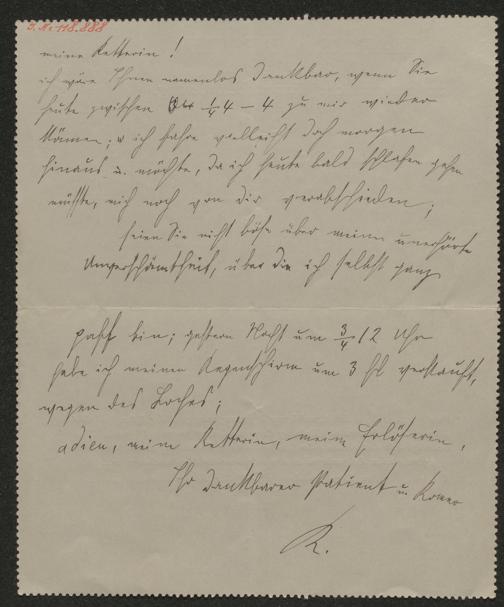 J. N. 118.888
meine Retterin!
ich wäre Ihnen namenlos dankbar, wenn Sie
heute zwischen 1/4 4 – 4 zu mir wieder
kämen; ich fahre vielleicht doch morgen
hinaus u. möchte, da ich heute bald schlafen gehn
müsste, mich noch von dir verabschieden;
seien Sie nicht böse über meine unerhörte
Unverschämtheit, über die ich selbst ganz
paff bin; gestern Nacht um 3/4 12 Uhr
habe ich meinen Regenschirm um 3 fl verkauft,
wegen des Loches;
adieu, meine Retterin, meine Erlöserin,
Ihr dankbarer Patient u.
R.